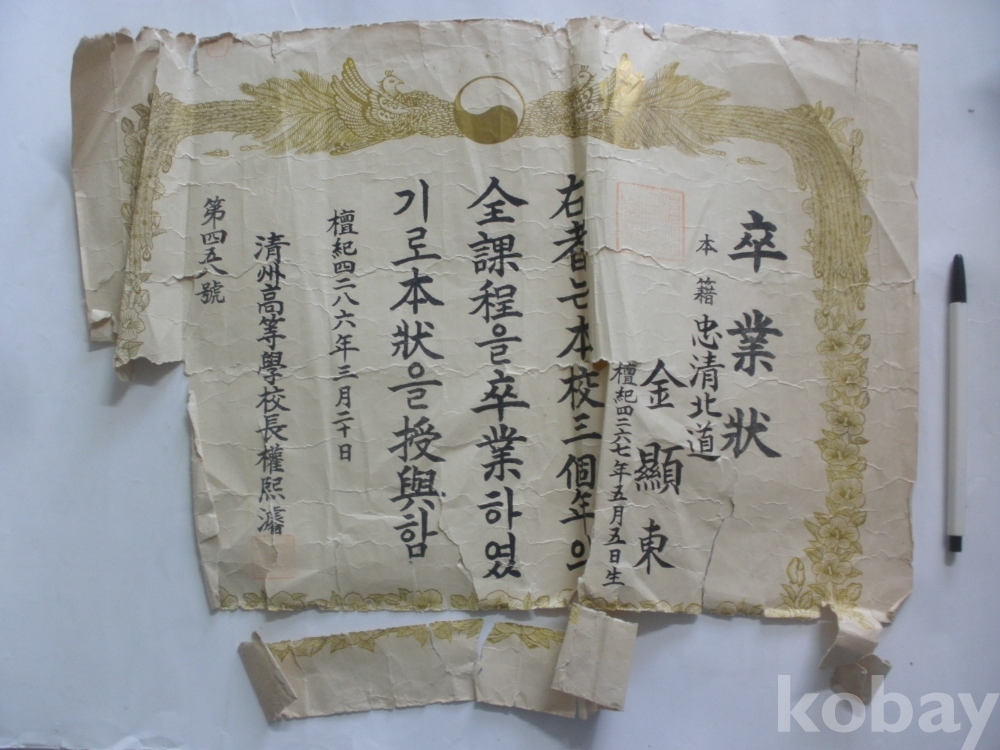 卒業狀
本籍 忠淸北道
金顯東
檀紀四二六七年五月五日生
右者는本校三個年의
全課程을卒業하였
기로本狀을授與함
檀紀四二八六年三月二十日
淸州高等學校長權熙
第四五八號
kobay